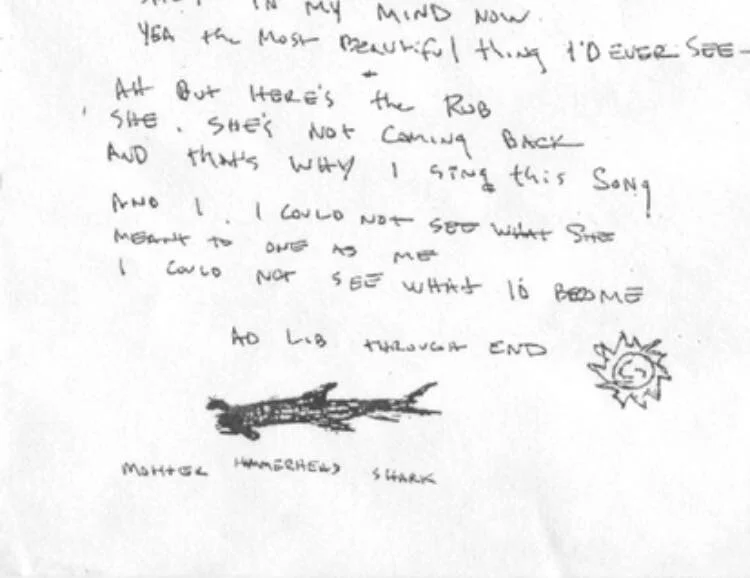 IN MY MIND NOW.
YEA the MOST BEAUTIFUL thing I'D EVER SEE-
AH BUT HERE'S the RUB
SHE. SHE'S NOT COMING BACK
AND that's WHY I sing this SONG
AND I. I COULD NOT SEE WHAT SHE
MEANT TO ONE AS ME
I COULD NOT SEE WHAT I'D BECOME
AD LIB THROUGH END
HAMMERHEAD SHARK